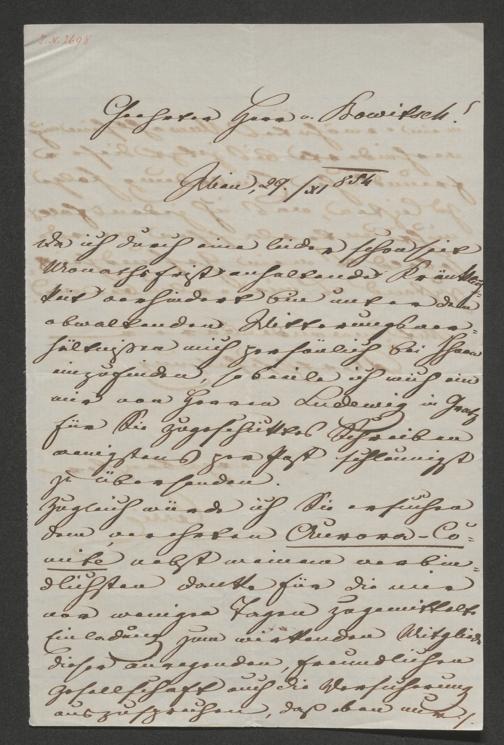 I.N. 2698
Geehrter Herr v. Bowitsch!
Wien, 29./XI 854
Da ich durch eine leider schon seit
Monathsfrist anhaltende Kränklich-
keit verhindert bin unter den
obwaltenden Witterungsver-
hältnißen mich persönlich bei Ihnen
einzufinden, so beeile ich mich ein
mir von Herrn Ludewig in Gratz
für Sie zugeschicktes Schreiben
wenigstens per Post schleunigst
zu übersenden.
Zugleich würde ich Sie ersuchen
dem verehrten Aurora-Co-
mité nebst meinem verbin-
dlichsten Danke für die mir
vor wenigen Tagen zugemittelte
Einladung zum wirkenden Mitgliede
dieser anregenden, freundlichen
Gesellschaft auch die Versicherung
auszusprechen, daß eben nur